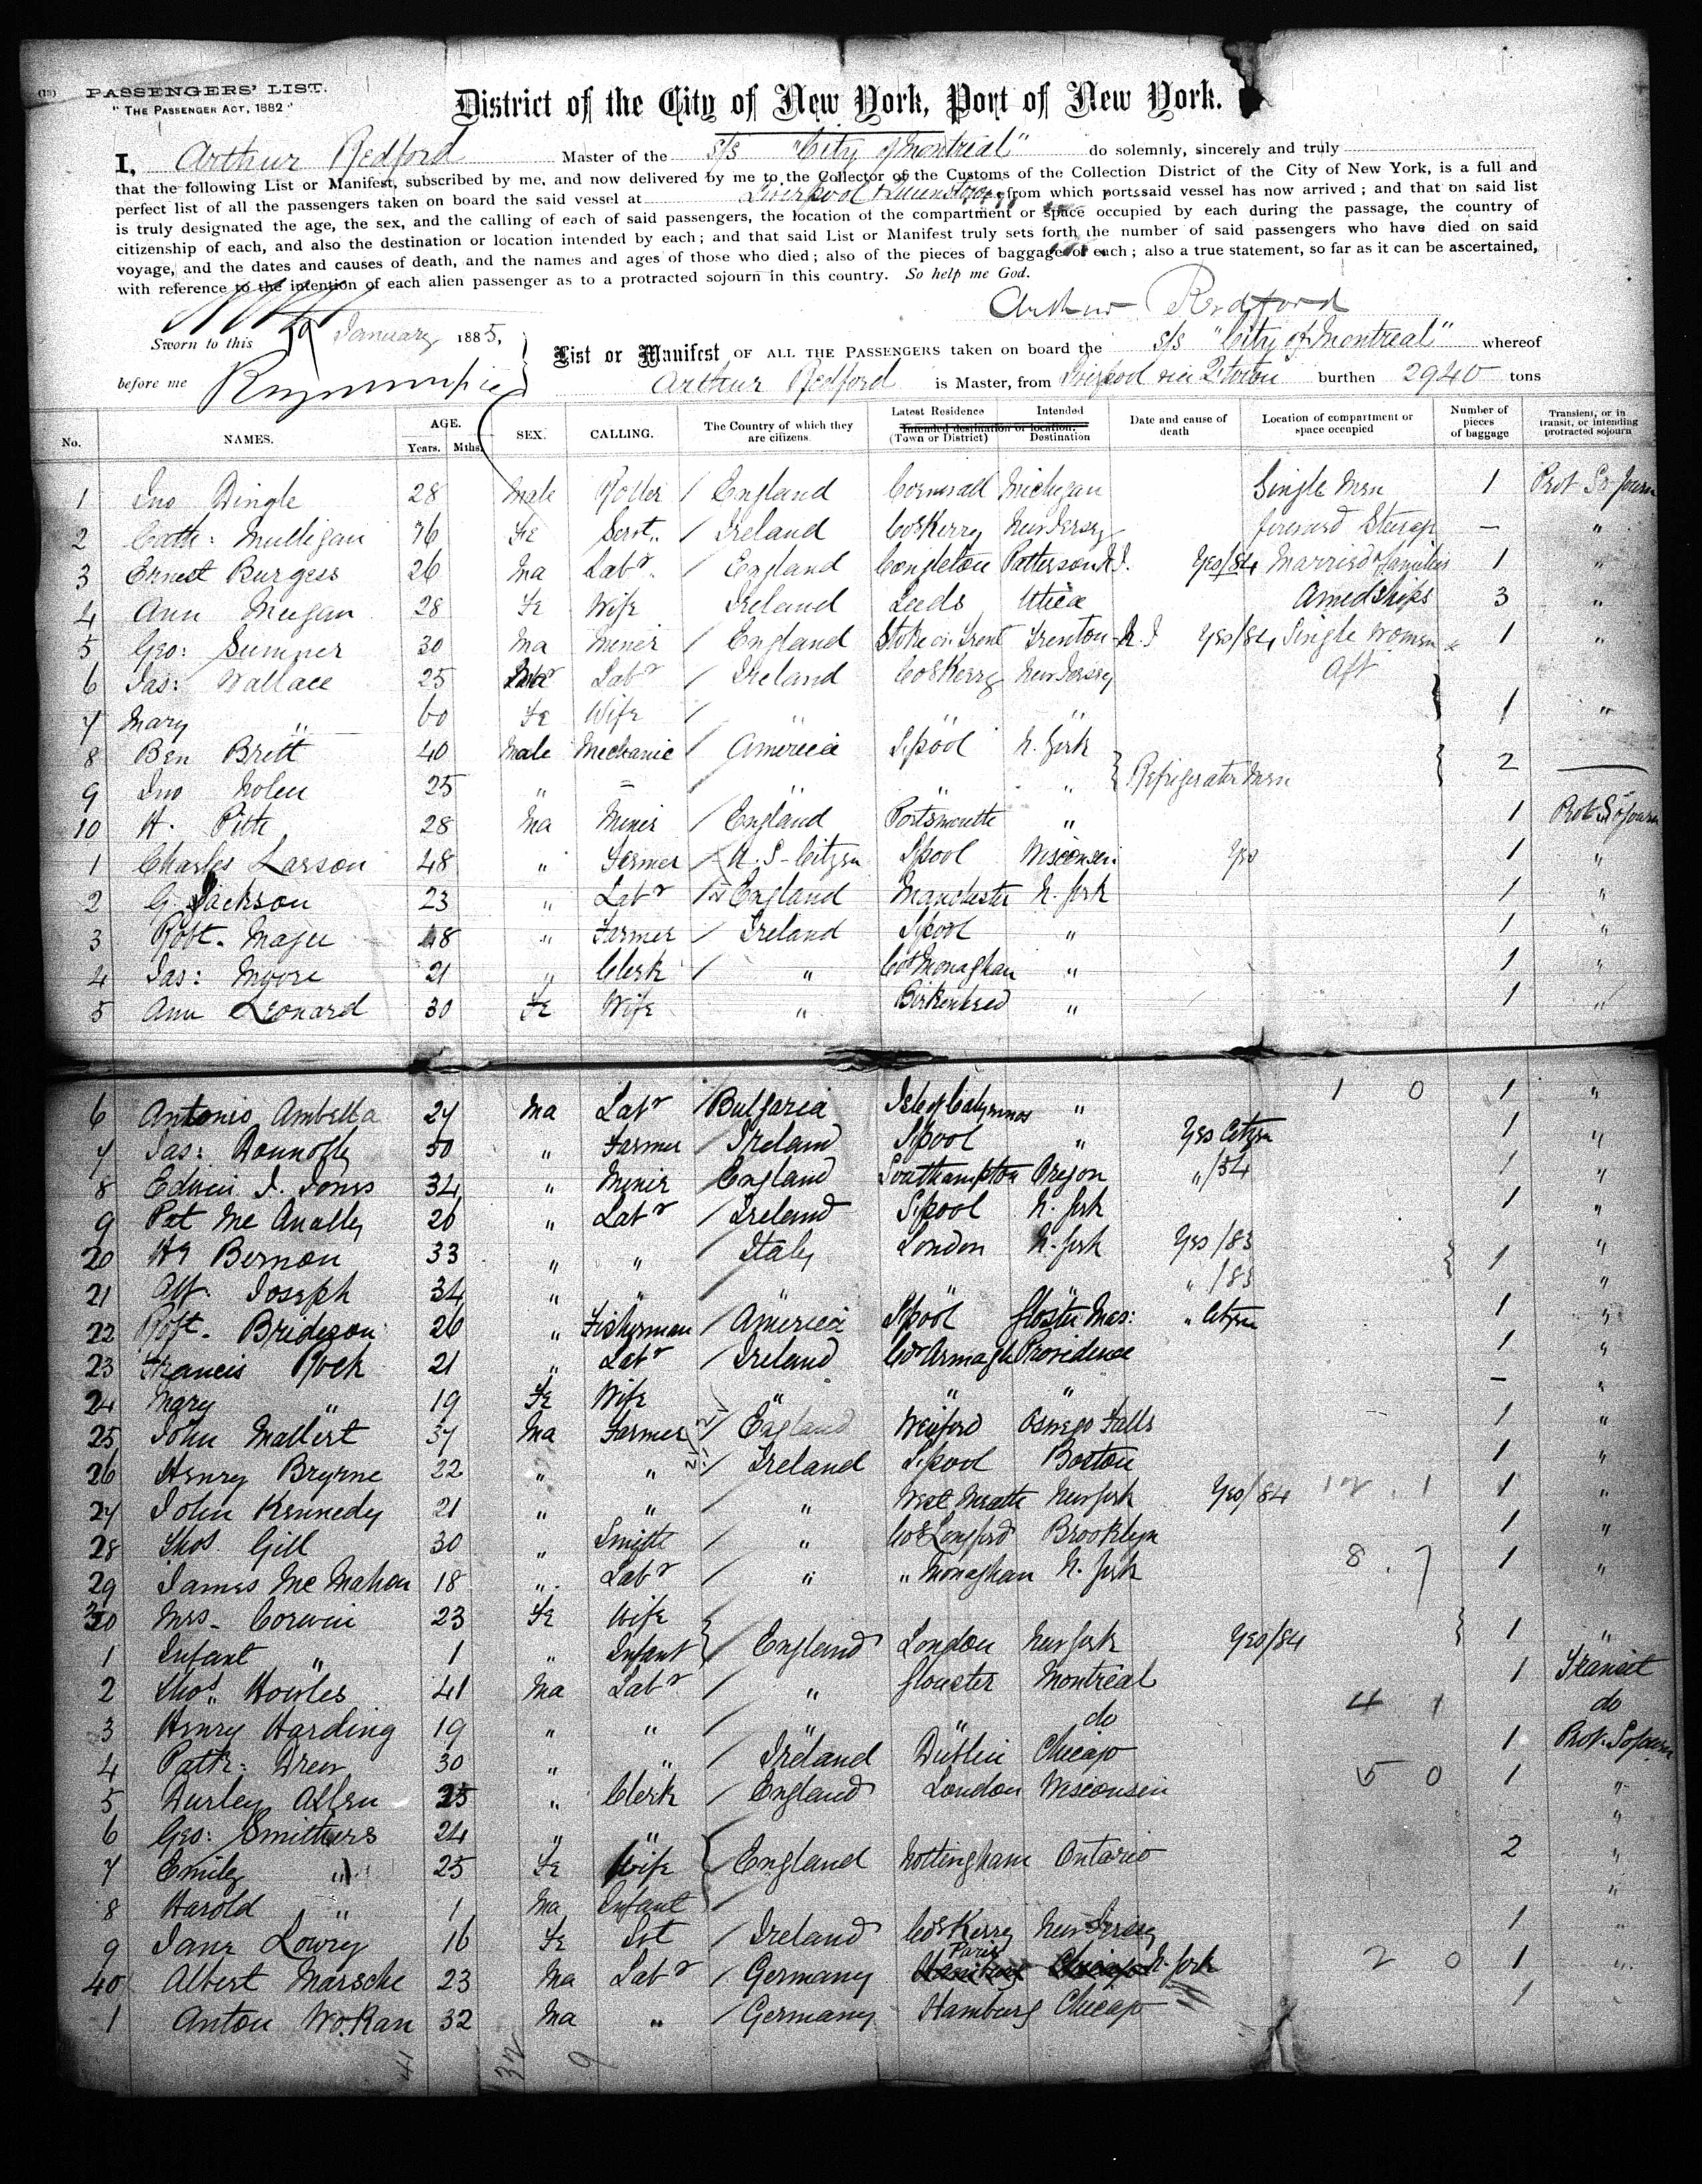 (18) PASSENGERS' LIST.
"THE PASSENGER ACT, 1882"
District of the City of New York, Port of New York.
I, Arthur Redford Master of the s/s "City of Montreal" do solemnly, sincerely and truly
that the following List or Manifest, subscribed by me, and now delivered by me to the Collector of the Customs of the Collection District of the City of New York, is a full and
perfect list of all the passengers taken on board the said vessel at Liverpool & Queenstown from which ports said vessel has now arrived; and that on said list
is truly designated the age, the sex, and the calling of each of said passengers, the location of the compartment or space occupied by each during the passage, the country of
citizenship of each, and also the destination or location intended by each; and that said List or Manifest truly sets forth the number of said passengers who have died on said
voyage, and the dates and causes of death, and the names and ages of those who died; also of the pieces of baggage of each; also a true statement, so far as it can be ascertained,
with reference to the intention of each alien passenger as to a protracted sojourn in this country. So help me God.
Arthur Redford
Sworn to this January 1885,
List or Manifest OF ALL THE PASSENGERS taken on board the s/s "City of Montreal" whereof
before me Arthur Redford is Master, from Liverpool via Q.town burthen 2940 tons
No. NAMES. AGE. Years. Mths. SEX. CALLING. The Country of which they are citizens. Latest Residence Intended destination or location. (Town or District) Intended Destination Date and cause of death Location of compartment or space occupied Number of pieces of baggage Transient, or in transit, or intending protracted sojourn
1 Jno Dingle 28 Male Potter / England Cornwall Michigan Single Men 1 Prot So-journ
2 Cath: Mulligan 76 Fe Servt. / Ireland Co Kerry New Jersey forward Steerage — "
3 Ernest Burgess 26 Ma Labr. / England Congleton Patterson N.J. Yes/84 Married & families 1 "
4 Ann Meegan 28 Fe Wife Ireland Leeds Utica Amedships 3 "
5 Geo: Sumner 30 Ma Miner / England Stoke on Trent Trenton N.J Yes/84 Single Women 1 "
6 Jas: Wallace 25 Labr / Ireland Co Kerry New Jersey Aft
7 Mary " 60 Fe Wife / " " " 1 "
8 Ben Britt 40 Male Mechanic / America L.pool N. York Refrigerator Men 2 —
9 Jno Nolen 25 " = " " "
10 H. Pitt 28 Ma Miner / England Portsmouth " 1 Prot Sojourn
1 Charles Larson 48 " Farmer / U.S-Citizen L.pool Wisconsin Yes 1 "
2 G. Jackson 23 " Labr / England Manchester N. York 1 "
3 Robt. Magee 48 " Farmer / Ireland L.pool " 1 "
4 Jas: Moore 21 " Clerk / " Co Monaghan " 1 "
5 Ann Leonard 30 Fe Wife " Birkenhead " 1 "
6 Antonio Ambella 27 Ma Labr / Bulgaria Isle of Calymnos " 1 0 1 "
7 Jas: Donnolly 50 " Farmer / Ireland L.pool " Yes Citzn 1 "
8 Edwin J. Jones 34 " Miner / England Southampton Oregon "/54 1 "
9 Pat Mc Anally 26 " Labr / Ireland L.pool N. York 1 "
20 Hy Bernon 33 " " / Italy London N. York Yes /83 1 "
21 Alf. Joseph 34 " " / " " " " /83 "
22 Robt. Brideson 26 " Fisherman / America L.pool Gloster Mas: " Citzn 1 "
23 Francis Rock 21 " Labr / Ireland Co Armagh Providence 1 "
24 Mary " 19 Fe Wife " " " - "
25 John Mallert 37 Ma Farmer / England Wexford Oswego Falls 1 "
26 Henry Bryrne 22 " " / Ireland L.pool Boston 1 "
27 John Kennedy 21 " " / " West Meath New York Yes/84 12 . 1 1 "
28 Thos Gill 30 " Smith / " Co Longford Brooklyn 1 "
29 James Mc Mahon 18 " Labr / " " Monaghan N. York 8 . 7 1 "
30 Mrs. Corwin 23 Fe Wife
1 Infant " 1 " Infant / England London New York Yes/84 1 "
2 Thos Howles 41 Ma Labr / " Glouster Montreal 1 Transit
3 Henry Harding 19 " " / " " do 4 1 do
4 Patk: Drew 30 " " / Ireland Dublin Chicago 1 Prot. Sojourn
5 Durley Allen 25 " Clerk / England London Wisconsin 5 0 1 "
6 Geo: Smithers 24 " " "
7 Emily " 25 Fe Wife England Nottingham Ontario 2 "
8 Harold " 1 Ma Infant / "
9 Jane Lowry 16 Fe Svt / Ireland Co Kerry New Jersey 1 "
40 Albert Marsche 23 Ma Labr / Germany Paris N. York 2 0 1 "
1 Anton Wo.Kan 32 Ma " / Germany Hamburg Chicago 1
41 32 9